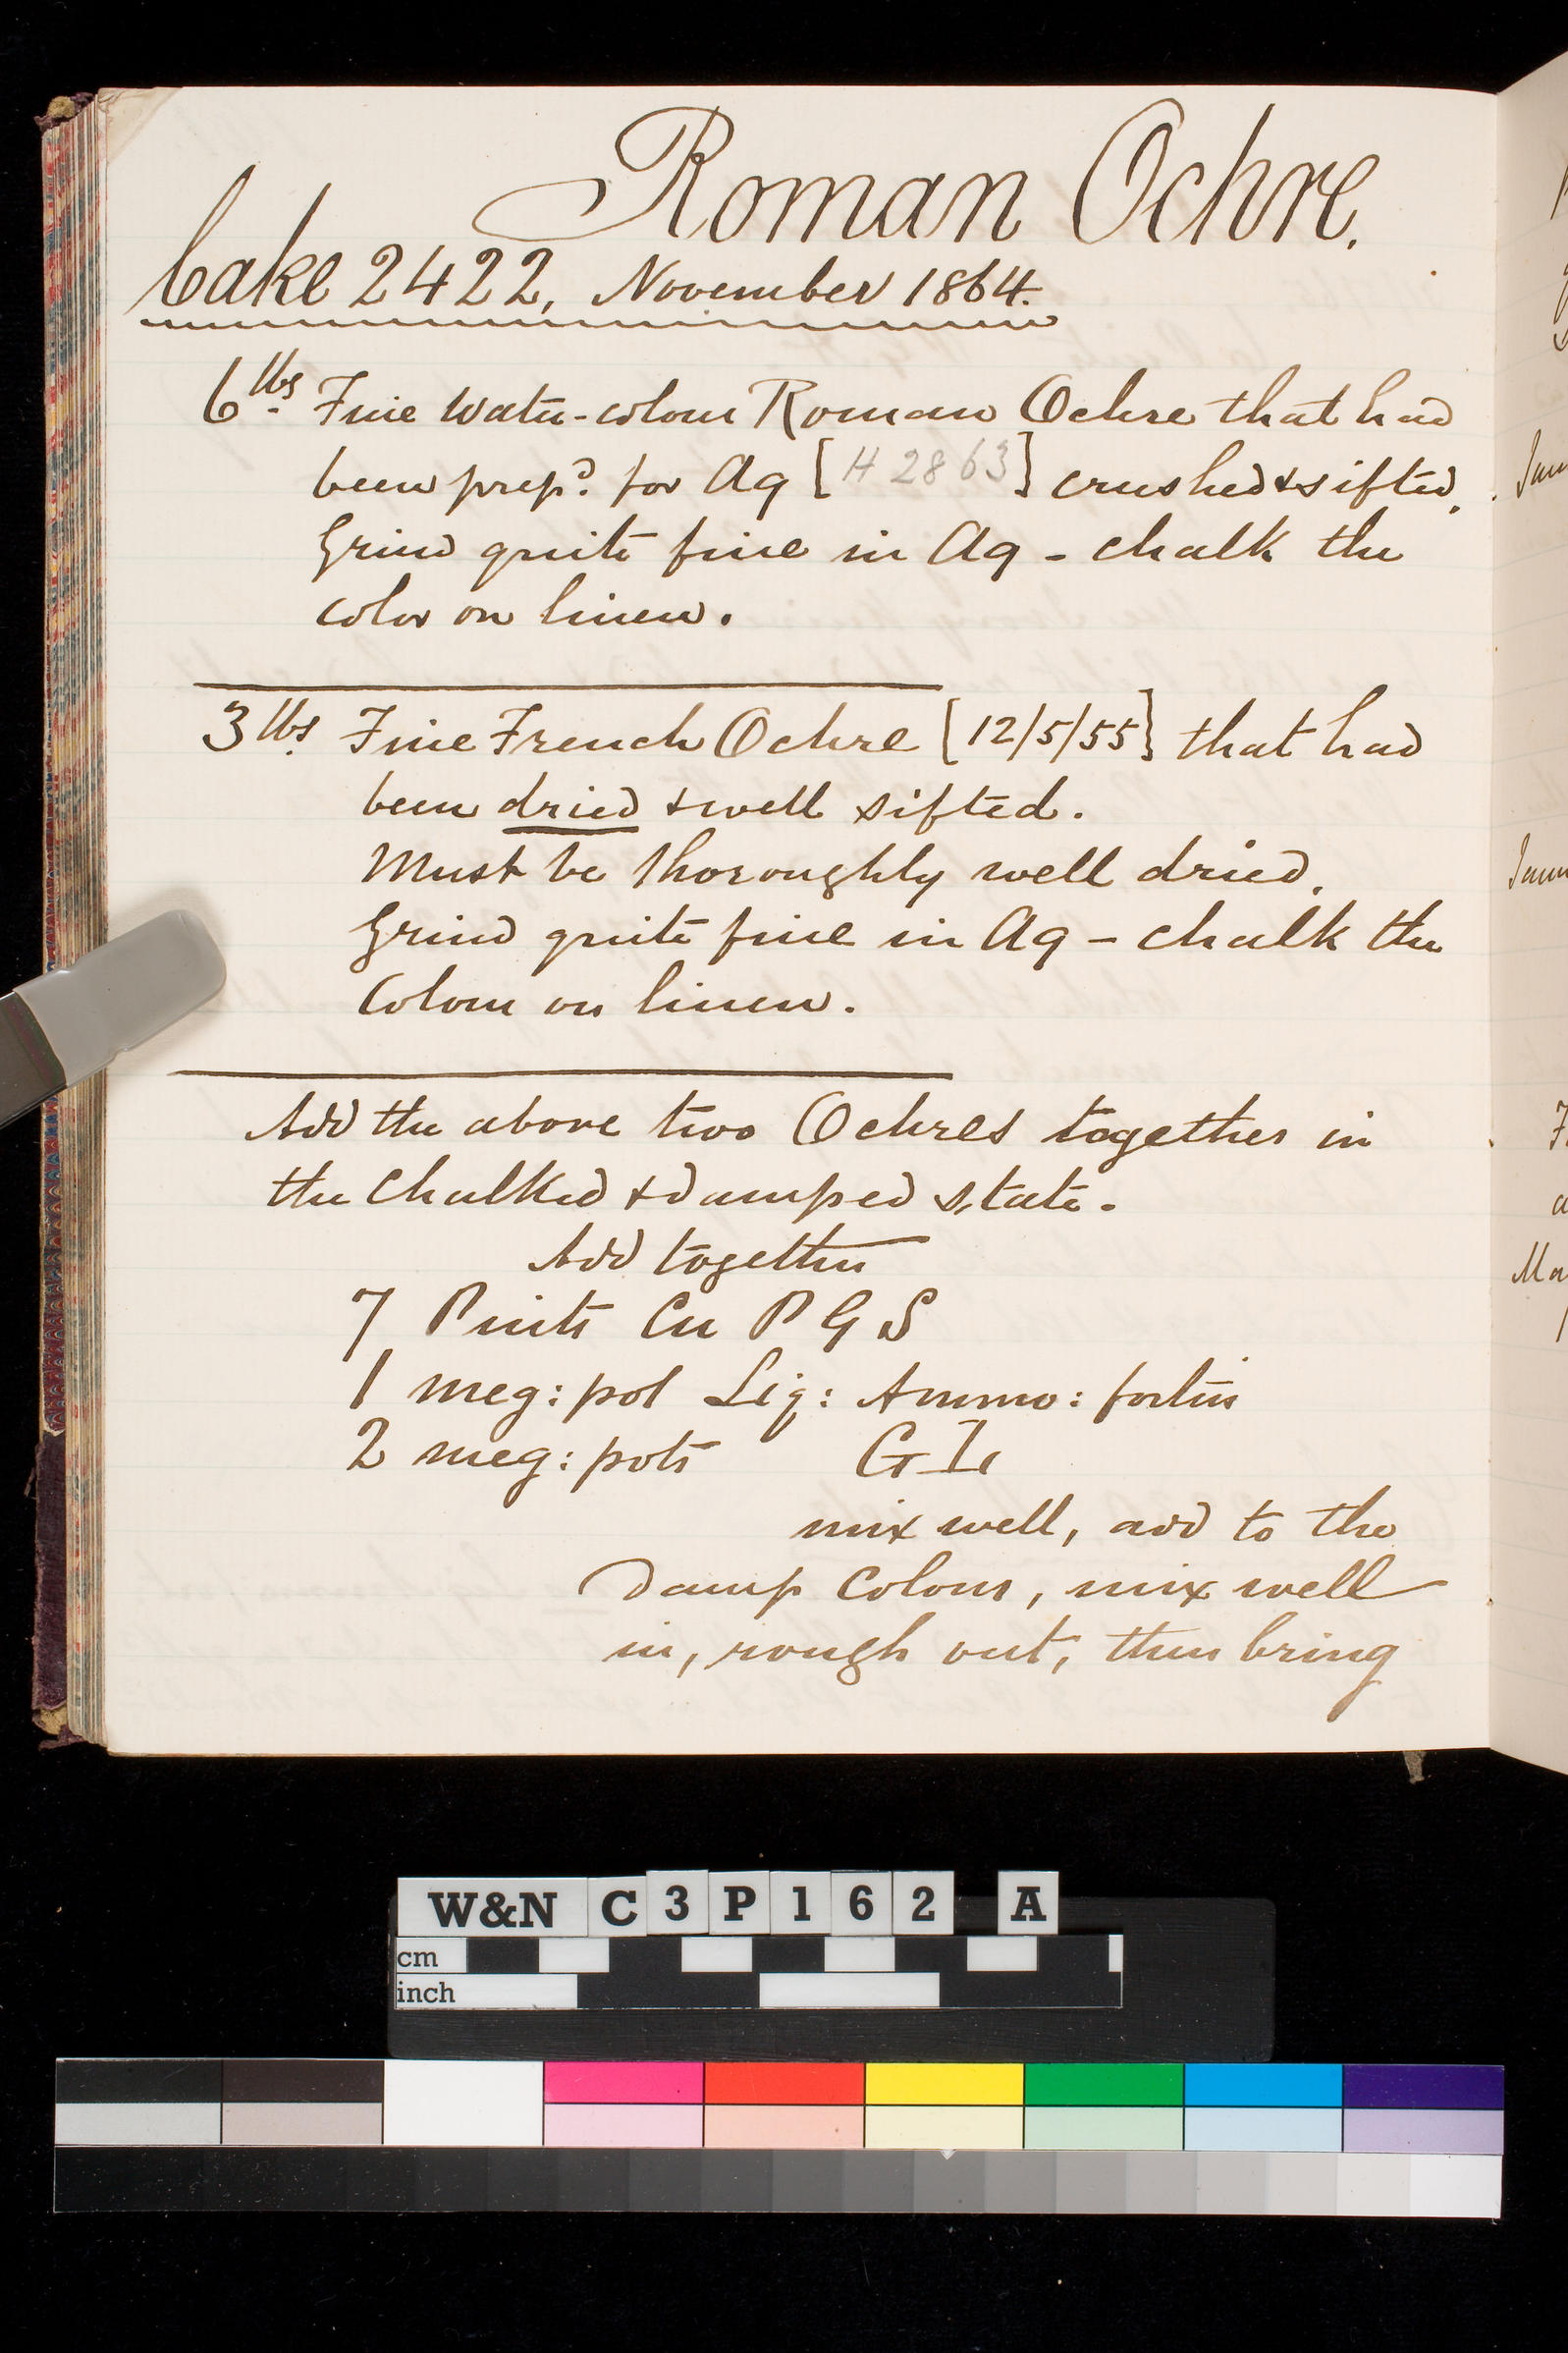 Roman Ochre.
Cake 2422, November 1864.
6 lbs. Fine Water-colour Roman Ochre that had
been prepd. for Aq [H 2863] crushed & sifted.
Grind quite fine in Aq - chalk the
color on linen.
3 lbs. Fine French Ochre [12/5/55] that had
been dried & well sifted.
Must be thoroughly well dried.
Grind quite fine in Aq - chalk the
Colour on linen.
Add the above two Ochres together in
the Chalked & damped state.
Add together
7 Pints Cu P G S
1 meg: pot Liq: Ammo: fortis
2 meg: pots
mix well, add to the
Damp Colour, mix well
in, rough out, then bring
W&N C3P162 A
cm
inch